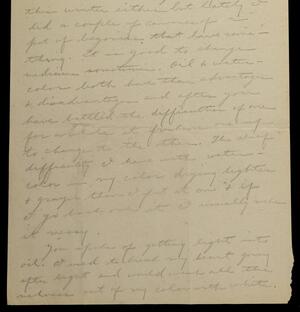 this winter either but lately I
did a couple of canvases of
pot of begonias that have
thing. It is good to change
mediums sometimes. Oil & water-
color both have their advantages
& disadvantages and after you
have battled the difficulties of one
for a while it
to change to the other. The chief
difficulty I have with water-
color — my color drying lighter
& grayer than I put it on & if
I go back over it I usually make
it messy.
You spoke of getting light into
oil. I used to break my heart going
after light and would wash all the
richness out of my color with white.